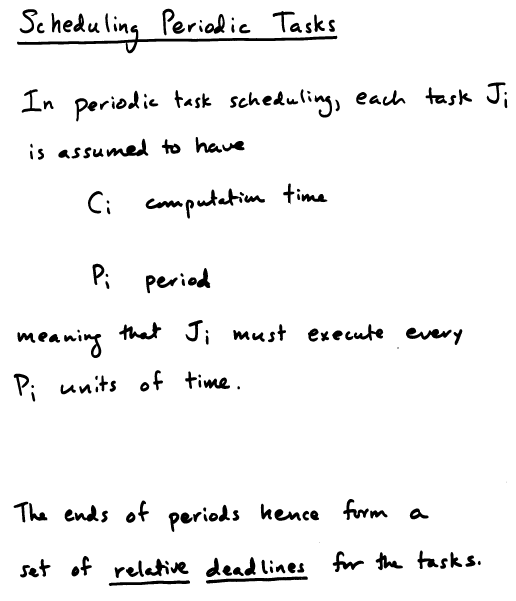 Scheduling Periodic Tasks
In periodic task scheduling, each task Ji
is assumed to have
Ci computation time
Pi period
meaning that Ji must execute every
Pi units of time.
The ends of periods hence form a
set of relative deadlines for the tasks.